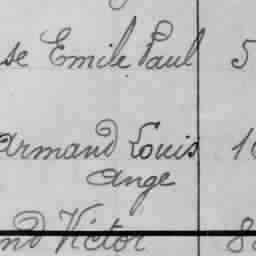 se Emile Paul 5
Armand Louis 10
Ange
nd Victor 8